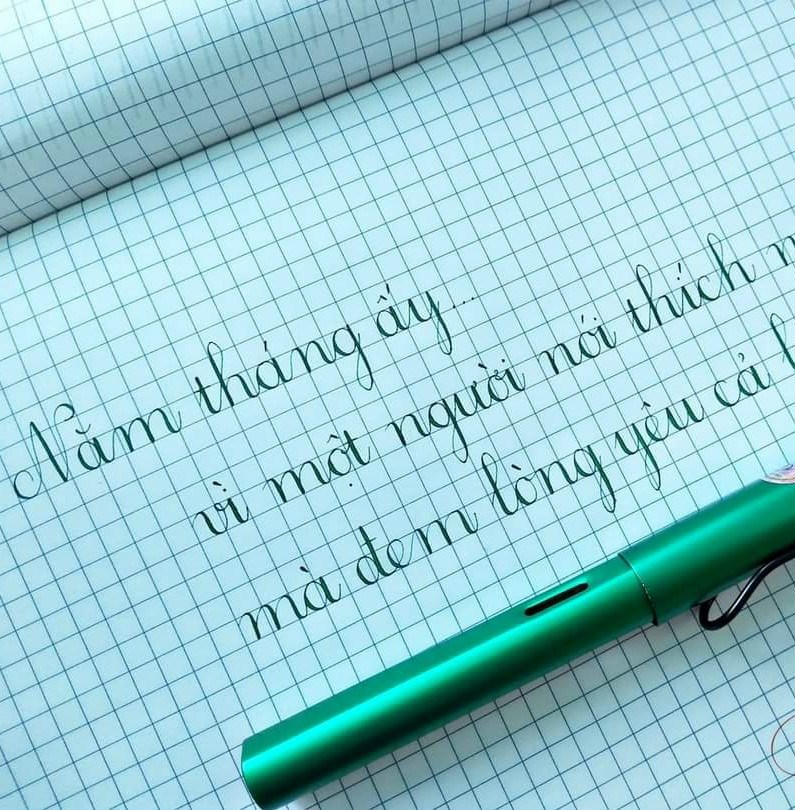 Năm tháng ấy...
vì một người nói thích
mà đem lòng yêu cả